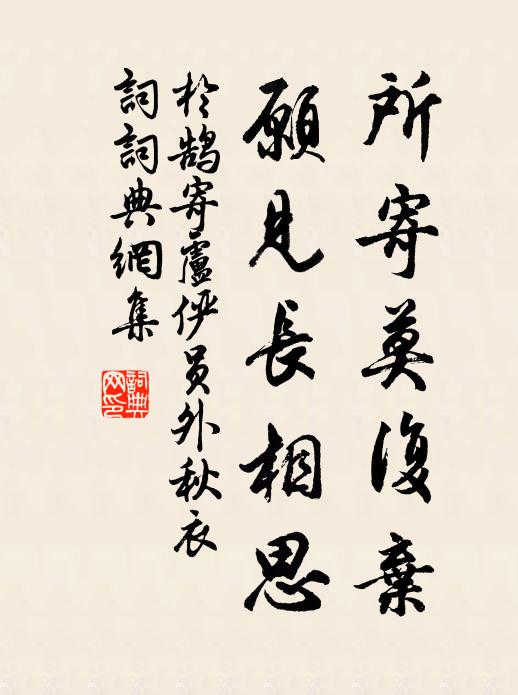 所寄莫復棄
願見長相思
於鵠寄盧儼員外秋衣
詞詞典網集
詞典网印